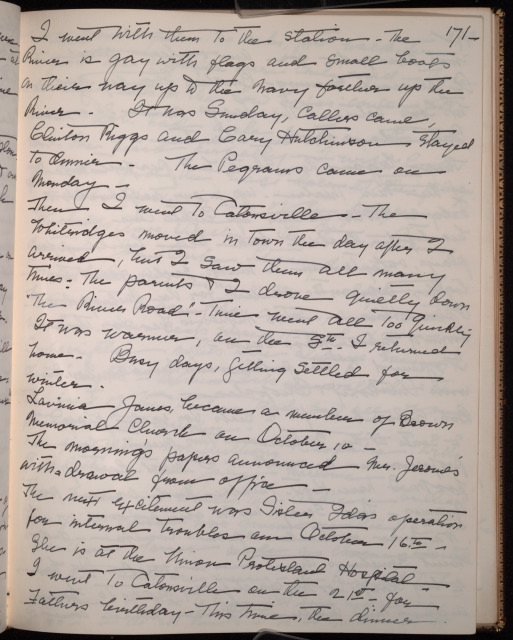 171-
I went with them to the station - The
River is gay with flags and small boats
on their way up to the Navy farther up the
River. - It was Sunday, Callers came,
Clinton Riggs and Cary Hutchinson stayed
to dinner - The Pegrams came on
Monday -
Then I went to Catonsville - The
Whitridges moved in Town the day after I
arrived, but I saw them all many
times - The parents & I drove quietly down
"The River Road" - Time went all too quickly
It was warmer, on the 8th I returned
home - Busy days, getting settled for
winter.
Lavinia Janes, became a member of Brown
Memorial Church on October 10 -
The morning's papers announced Mr. Jerome's
withdrawal from office -
The next excitement was Sister Ida's operation
for internal troubles on October 16th -
She is at the Union Protestant Hospital
I went to Catonsville on the 21st for
Father's birthday - This time, the dinner